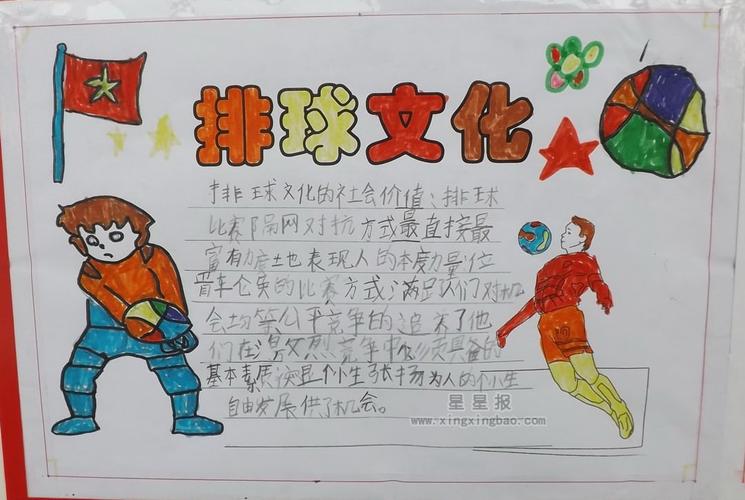 排球文化
排球文化的社会价值：排球
比赛隔网对抗方式最直接最
富有力度地表现人的本度力量位
育车仑奂的比赛方式；满足队们对机
会均等公平竞争的追求了他
们在激烈竞争中必须具备的
基本素质凸显个小生张扬为人的个小生
自由发展供了机会。
星星报
www.xingxingbao.com